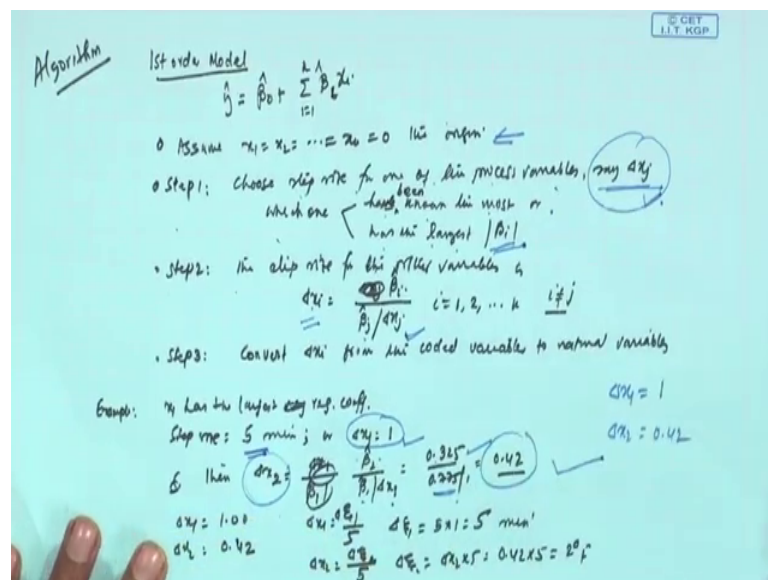 © CET
I.I.T. KGP
Algorithm
1st order Model
ŷ = β̂₀ + Σ β̂ᵢ xᵢ
i=1
Assume x₁ = x₂ = ... = xₖ = 0 the origin.
Step 1: Choose step size for one of the process variables, say Δxⱼ
which one
been
known the most or
has the largest |βᵢ|
Step 2: the step size for the other variables is
Δxᵢ = β̂ᵢ / (β̂ⱼ/Δxⱼ) i = 1, 2, ... k i ≠ j
Step 3: Convert Δxᵢ from the coded variable to natural variables
Δx₁ = 1
Δx₂ = 0.42
Example: x₁ has the largest reg. coeff.
Step one: 5 min; or Δx₁ = 1
then Δx₂ = β̂₂ / (β̂₁/Δx₁) = 0.325 / = 0.42
Δx₁ = 1.00 Δx₁ = Δξ₁/5 Δξ₁ = 5×1 = 5 min
Δx₂ = 0.42
Δx₂ = Δξ₂/5 Δξ₂ = Δx₂×5 = 0.42×5 = 2°F